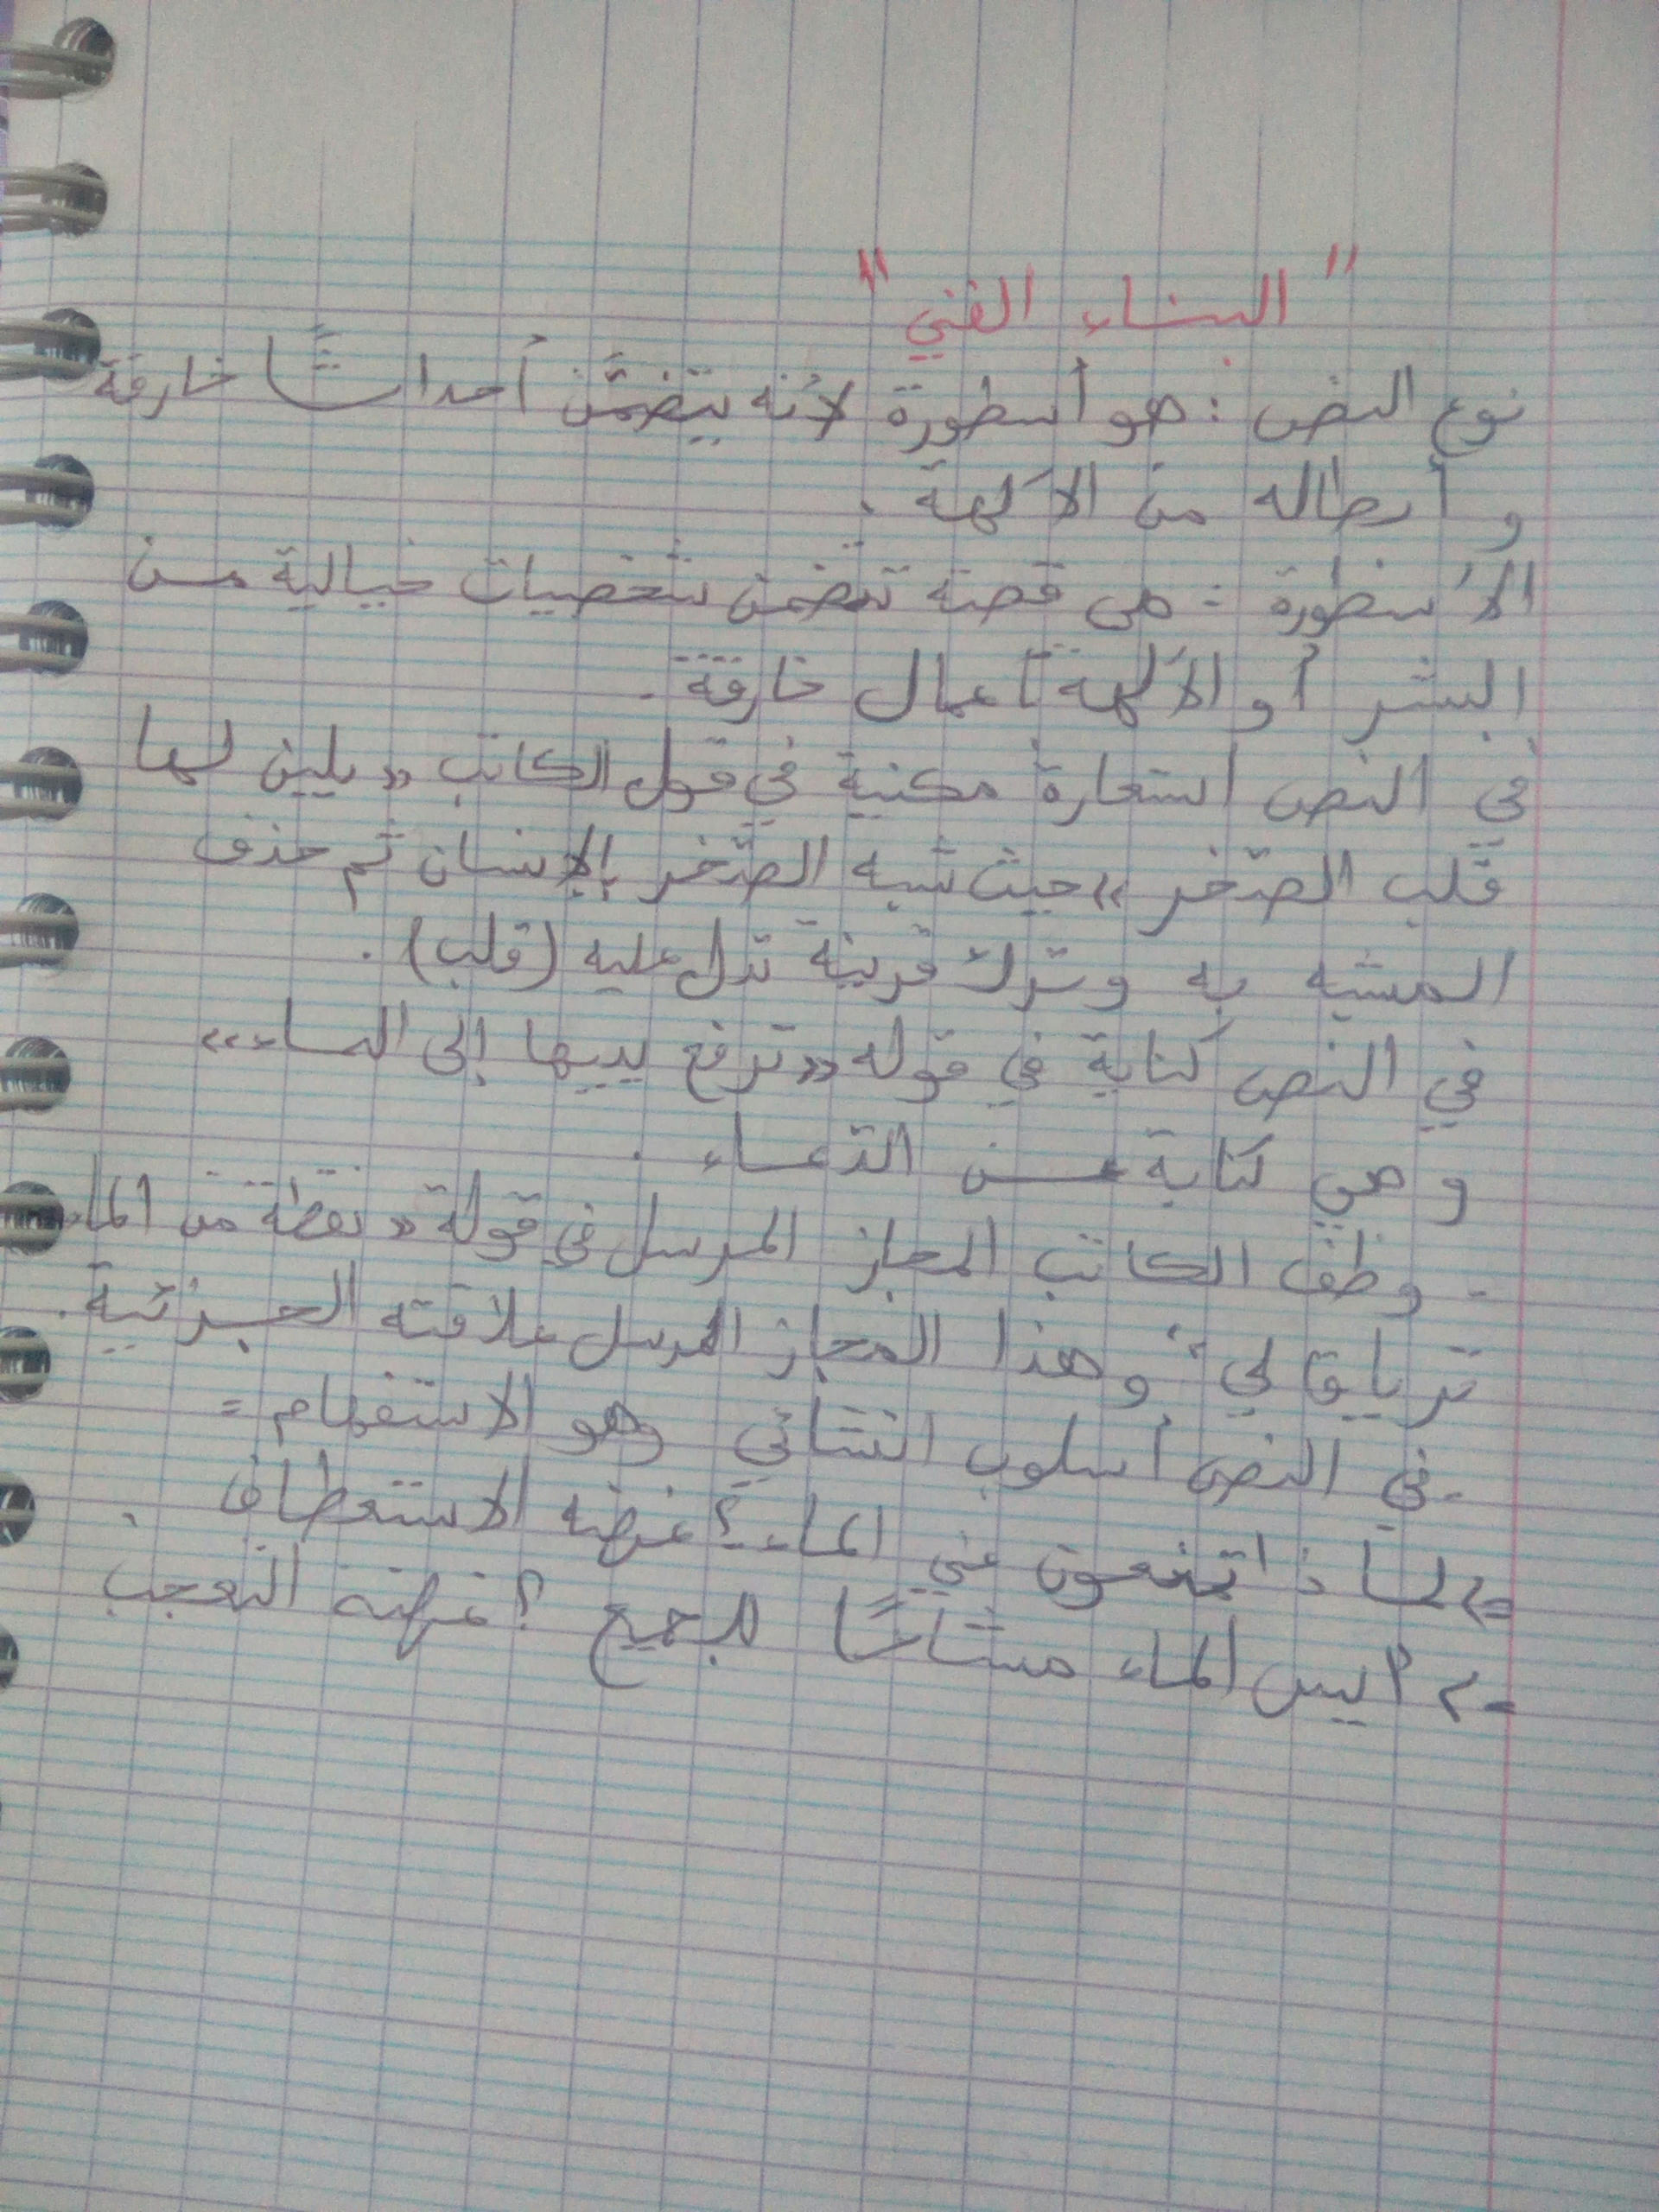 " البناء الفني "
نوع النص : هو أسطورة لأنه يتضمّن أحداثًا خارقة
و أبطاله من الآلهة .
الأسطورة : هي قصة تتضمن شخصيات خيالية من
البشر أو الآلهة أعمال خارقة .
في النص استعارة مكنية في قول الكاتب « يلين لها
قلب الصّخر » حيث شبه الصّخر بالإنسان ثم حذف
المشبه به وترك قرينة تدل عليه (قلب) .
في النص كناية في قوله « ترفع يديها إلى السماء »
وهي كناية عن الدّعاء .
- وظف الكاتب المجاز المرسل في قولة « نقطة من الماء
ترياقا لي " وهذا المجاز المرسل علاقته الجزئية .
- في النص أسلوب انشائي وهو الاستفهام =
=> لماذا تمنعون عني الماء ؟ غرضه الاستعطاف .
-> أليس الماء مشاعًا للجميع ؟ غرضه التعجب